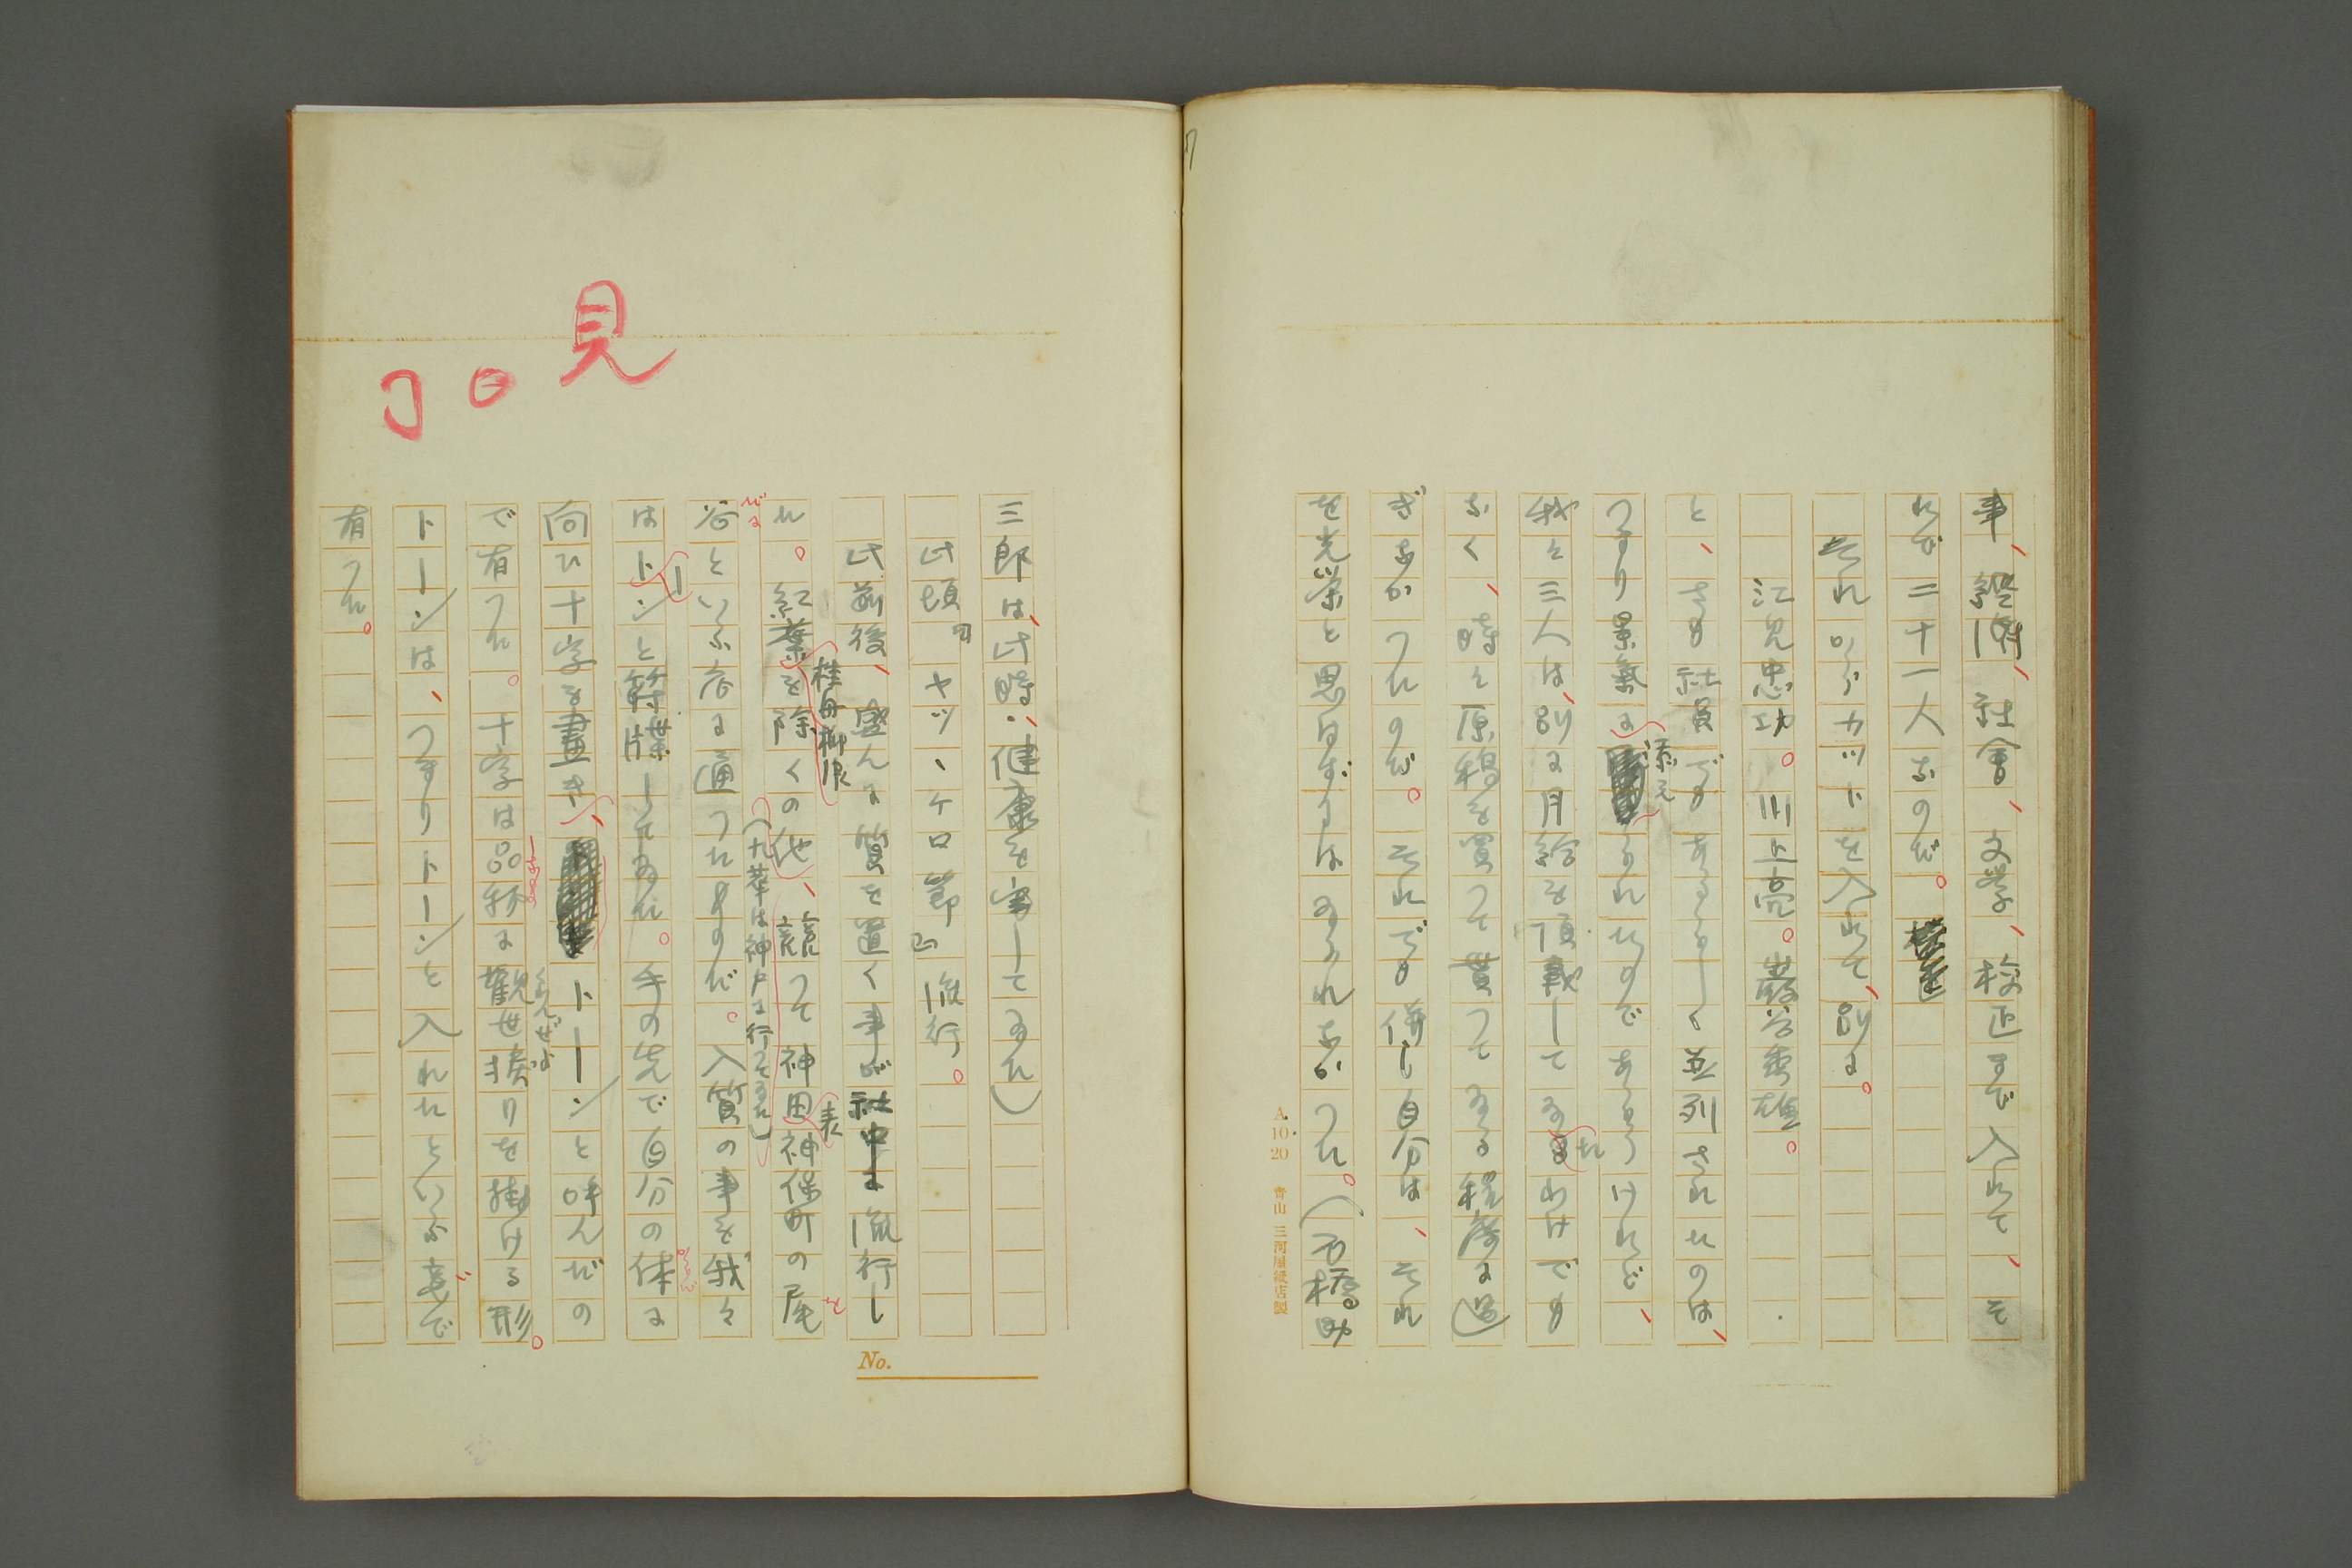 事、經済、社會、文學、校正まで入れて、そ
れで二十一人なのだ。
それからカットを入れて、別に。
江見忠功。川上亮。巖谷季雄。
と、さも社員でもあるらしく並列されたのは、
つまり景氣に添えられたのであらうけれど、
我々三人は、別に月給を頂戴してゐたわけでも
なく、時々原稿を買つて貰つてゐる程度に過
ぎなかつたのだ。それでも併し自分は、それ
を光榮と思はずにはゐられなかつた。(石橋助
A. 10. 20 青山 三河屋紙店製
見
三郎は、此時、健康を害してゐた)
此頃『ヤツ、ケロ節』流行。
此前後、盛んに質を置く事が社中に流行し
た。紅葉を除くの他、競つて神田表神保町の尾
桂舟柳浪
(九華は神戸に行つてゐた)
谷といふ店に通つたものだ。入質の事を我々
はトーンと符牒してゐた。手の先で自分の体に
からだ
向ひ十字を畫き、トーンと呼んだの
で有つた。十字は品物に觀世撚りを掛ける形。
くわんぜより
トーンは、つまりトーンと入れたといふ意で
有つた。
No.